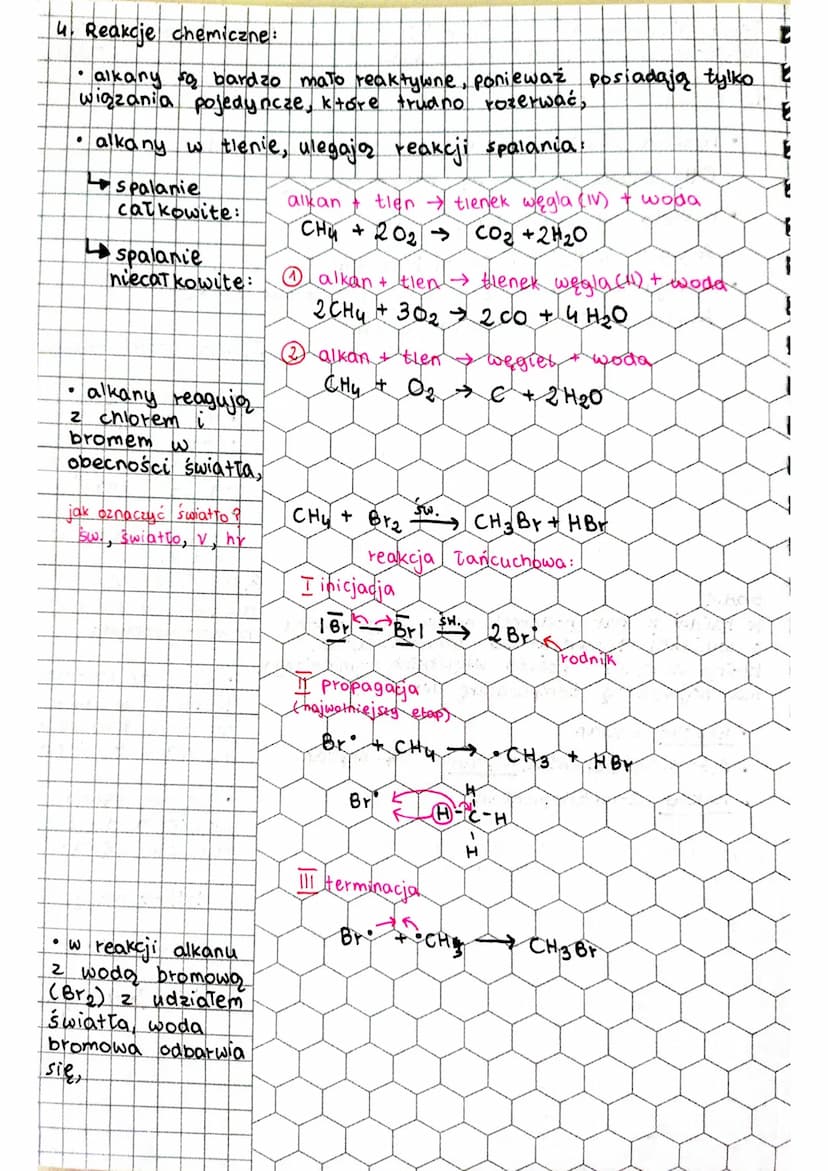 4. Reakcje chemiczne:
• alkany są bardzo mało reaktywne, ponieważ posiadają tylko
wiązania pojedyncze, które trudno rozerwać,
• alkany w tlenie, ulegają reakcji spalania:
↳ spalanie
całkowite:
alkan + tlen → tlenek węgla (IV) + woda
CH₄ + 2O₂ → CO₂ + 2H₂O
↳ spalanie
niecałkowite:
① alkan + tlen → tlenek węgla (II) + woda
2CH₄ + 3O₂ → 2CO + 4H₂O
② alkan + tlen → węgiel + woda
CH₄ + O₂ → C + 2H₂O
• alkany reagują
z chlorem i
bromem w
obecności światła,
jak oznaczyć światło?
św., światło, ν, hν
CH₄ + Br₂ św. → CH₃Br + HBr
reakcja łańcuchowa:
I inicjacja
|Br — Br| św. → 2Br•
rodnik
II propagacja
(najwolniejszy etap)
Br• + CH₄ → •CH₃ + HBr
H
Br• H-C-H
H
III terminacja
Br• + •CH₃ → CH₃Br
• w reakcji alkanu
z wodą bromową
(Br₂) z udziałem
światła, woda
bromowa odbarwia
się,